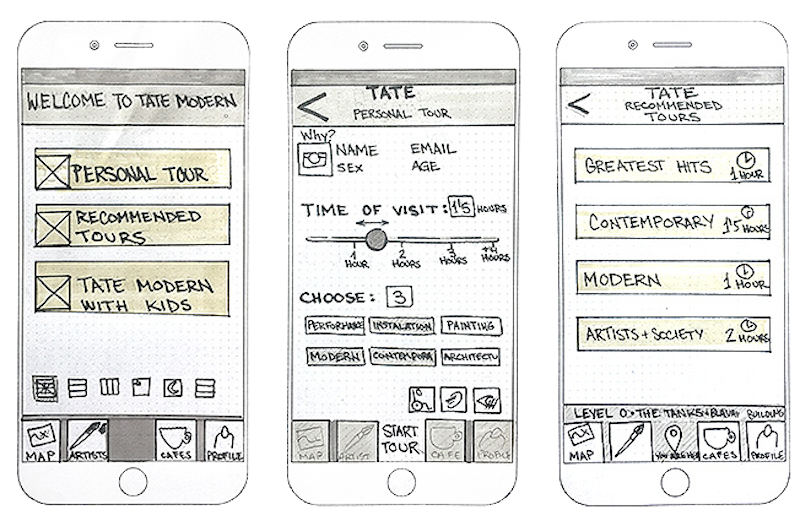 WELCOME TO TATE MODERN
PERSONAL TOUR
RECOMMENDED
TOURS
TATE MODERN
WITH KIDS
MAP
ARTISTS
CAFES
PROFILE
TATE
PERSONAL TOUR
Why?
NAME EMAIL
SEX AGE
TIME OF VISIT: 1'5 HOURS
1 2 3 +4
HOUR HOURS HOURS HOURS
CHOOSE: 3
PERFORMANCE INSTALATION PAINTING
MODERN CONTEMPORA ARCHITECTU
MAP
ARTIST
START
TOUR
CAFE
PROFILE
TATE
RECOMMENDED
TOURS
GREATEST HITS 1 HOUR
CONTEMPORARY 1'5 HOURS
MODERN 1 HOUR
ARTISTS + SOCIETY 2 HOURS
LEVEL 0 > THE TANKS + BUILDING
MAP
YOU ARE HER
CAFES
PROFILE